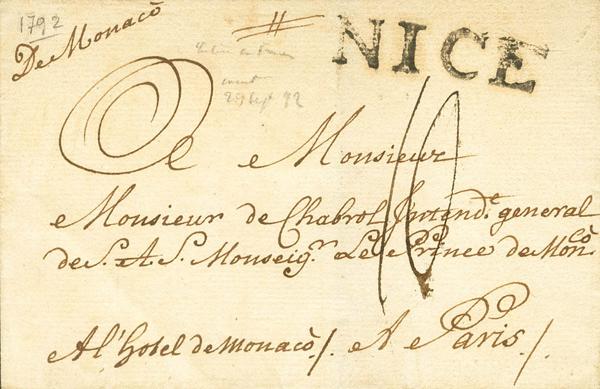 1792
De Monacò
NICE
29 Sept 92
A Monsieur
Monsieur de Chabrol Intend.t general
de S. A. S. Monseig.r Le Prince de Mon.cò
A l'hotel de Monacò /. A Paris /.